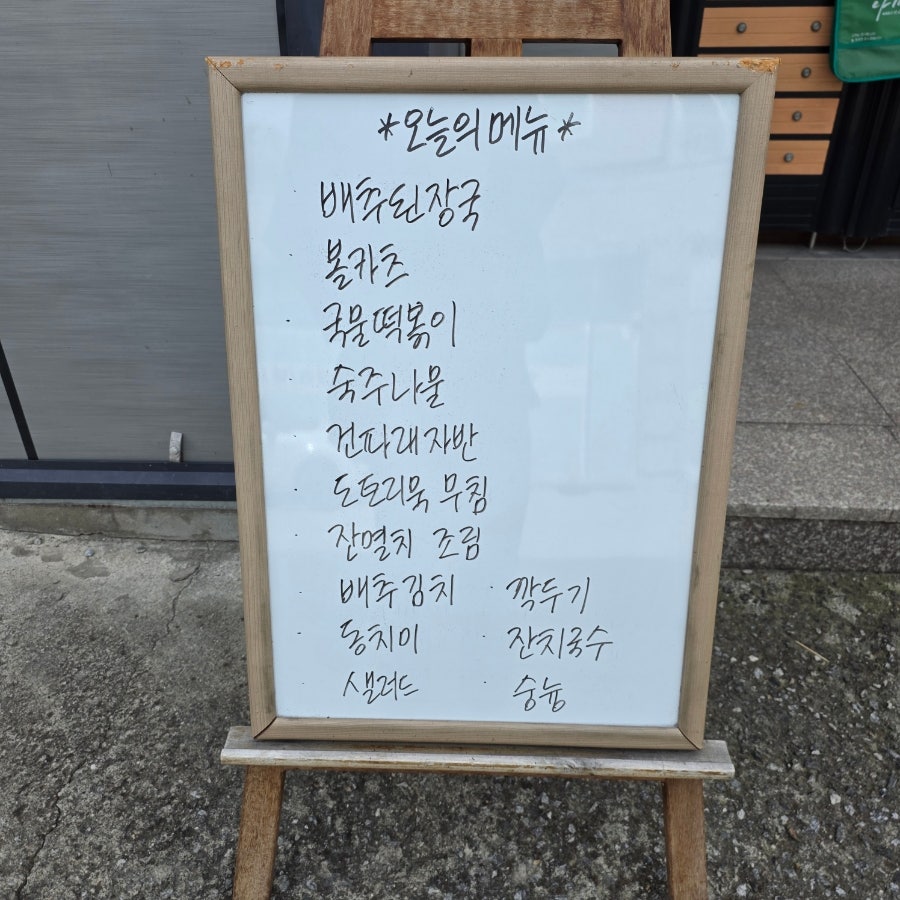 *오늘의 메뉴*
배추된장국
· 볼카츠
· 국물떡볶이
· 숙주나물
건파래자반
· 도토리묵 무침
· 잔멸치 조림
배추김치 · 깍두기
· 동치미 · 잔치국수
샐러드 · 숭늉